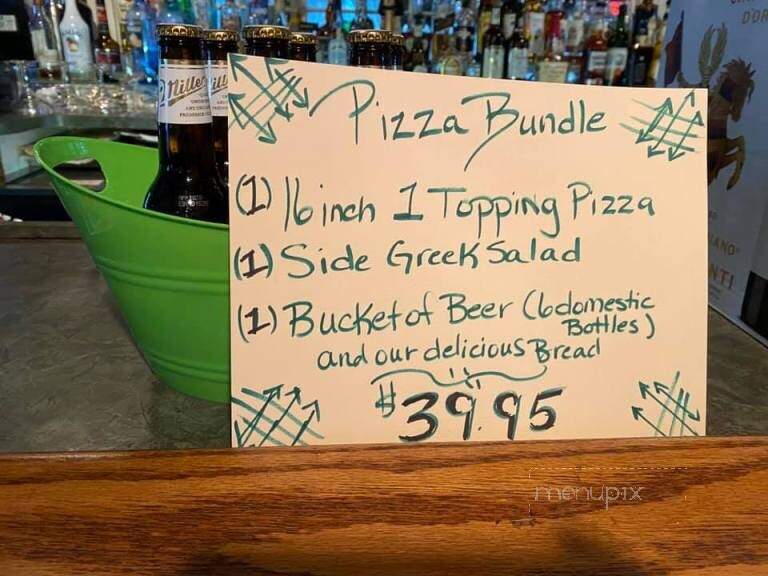 Pizza Bundle
(1) 16 inch 1 Topping Pizza
(1) Side Greek Salad
(1) Bucket of Beer (6 domestic
Bottles)
and our delicious Bread
$39.95
Miller
menupix